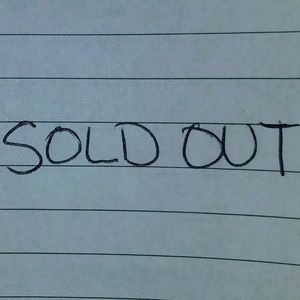 SOLD OUT